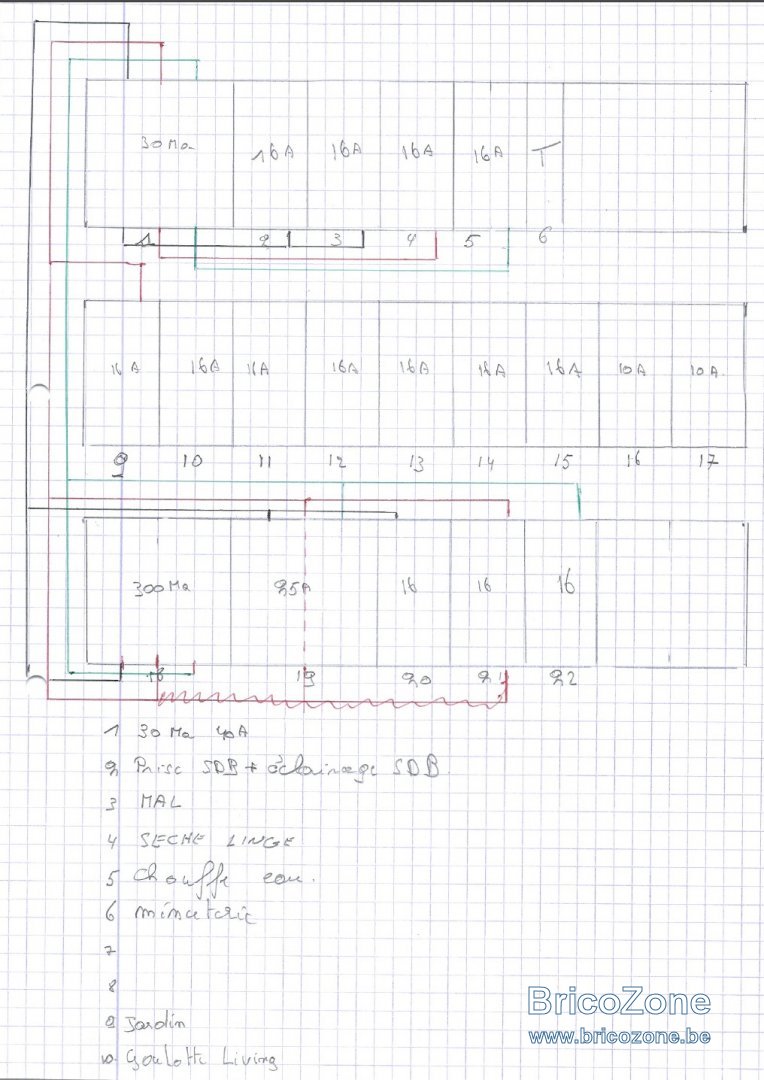 30 Ma 16A 16A 16A 16A T
1 2 3 4 5 6
16A 16A 16A 16A 16A 16A 16A 10A 10A
9 10 11 12 13 14 15 16 17
300 Ma 25A 16 16 16
18 19 20 21 22
1 30 Ma 40A
2 Prise SDB + éclairage SDB
3 MAL
4 SECHE LINGE
5 Chouffe eau.
6 minuterie
7
8
9 Jardin
10 Goulotte Living
BricoZone
www.bricozone.be